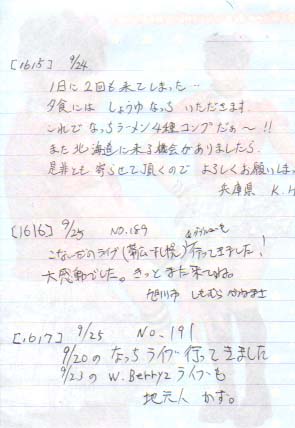 [1615] 9/24
1日に2回も来てしまった…
夕食には しょうゆなっち いただきます。
これで なっちラーメン4種コンプだぁ〜!!
また北海道に来る機会がありましたら
是非とも寄らせて頂くので よろしくお願いしま
兵庫県 K.H
[1616] 9/25 NO.189
こないだのライブ(帯広・札幌)行ってきました!
大感動でした。きっとまた来てね。
旭川市 しもむら
[1617] 9/25 No.191
9/20の なっちライブ 行ってきました
9/23の W.Berryz ライブも
地元人 かず。